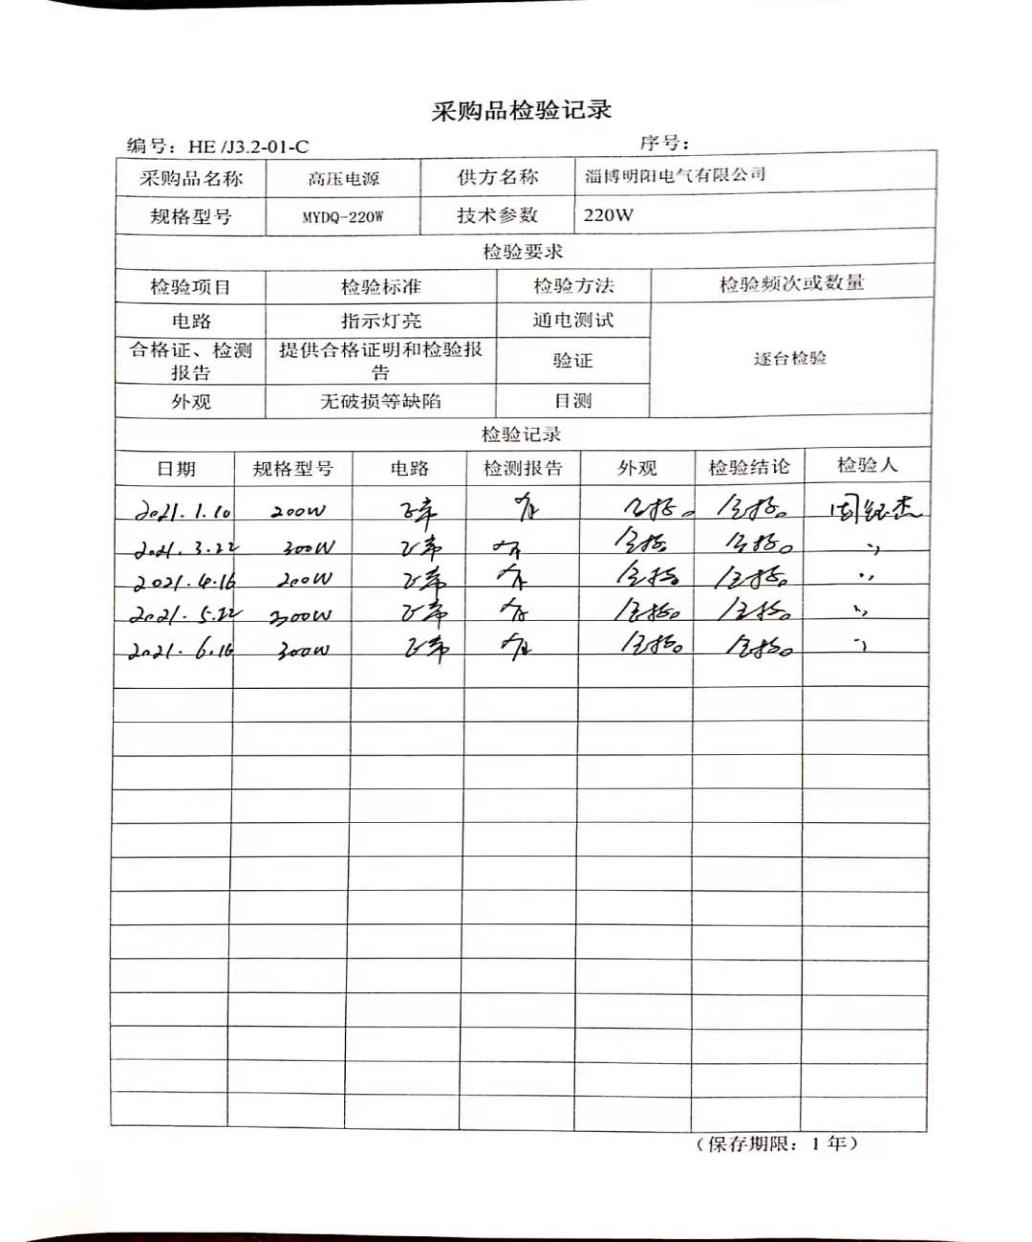 采购品检验记录
编号：HE /J3.2-01-C 序号：
采购品名称 高压电源 供方名称 淄博明阳电气有限公司
规格型号 MYDQ-220W 技术参数 220W
检验要求
检验项目 检验标准 检验方法 检验频次或数量
电路 指示灯亮 通电测试
合格证、检测报告 提供合格证明和检验报告 验证 逐台检验
外观 无破损等缺陷 目测
检验记录
日期 规格型号 电路 检测报告 外观 检验结论 检验人
2021.1.10 200W 正常 有 合格。 合格。
2021.3.22 300W 正常 有 合格 合格。 〃
2021.4.16 200W 正常 有 合格 合格。 〃
2021.5.22 300W 正常 有 合格。 合格。 〃
2021.6.16 300W 正常 有 合格。 合格。 〃
（保存期限：1 年）